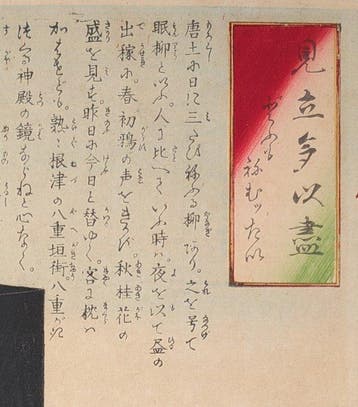 見立多以盡
どふも
祢むッたい
唐土に日に三たび祢ふる柳あり。之を号て
眠柳と以ふ。人に比へていふ時ハ。夜を以て昼の
出稼に。春初鴉の声をきけバ。秋桂花の
盛を見る。昨日に今日と替ゆく。客に枕ハ
かはせども。熟々根津の八重垣街八重がき
つくる神殿の鏡ならねど心なく。